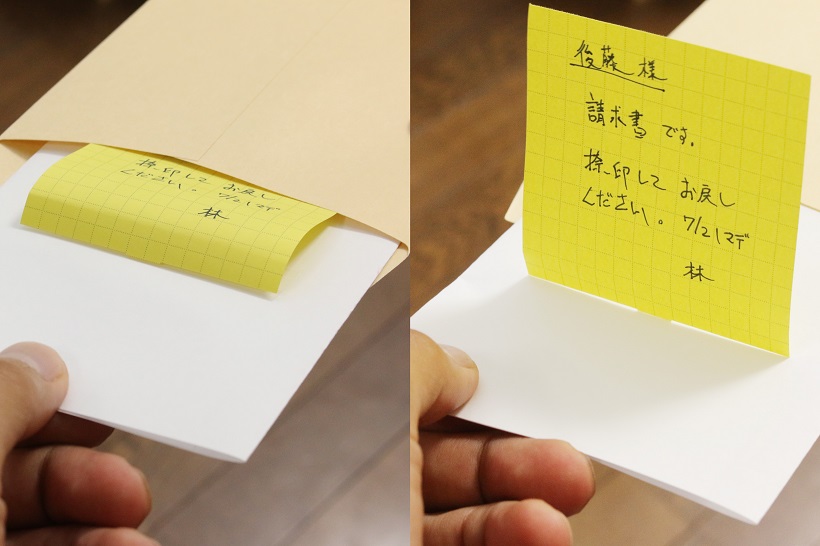 捺印して お戻し
ください。 7/21マデ
林
後藤 様
請求書 です。
捺印して お戻し
ください。 7/21マデ
林